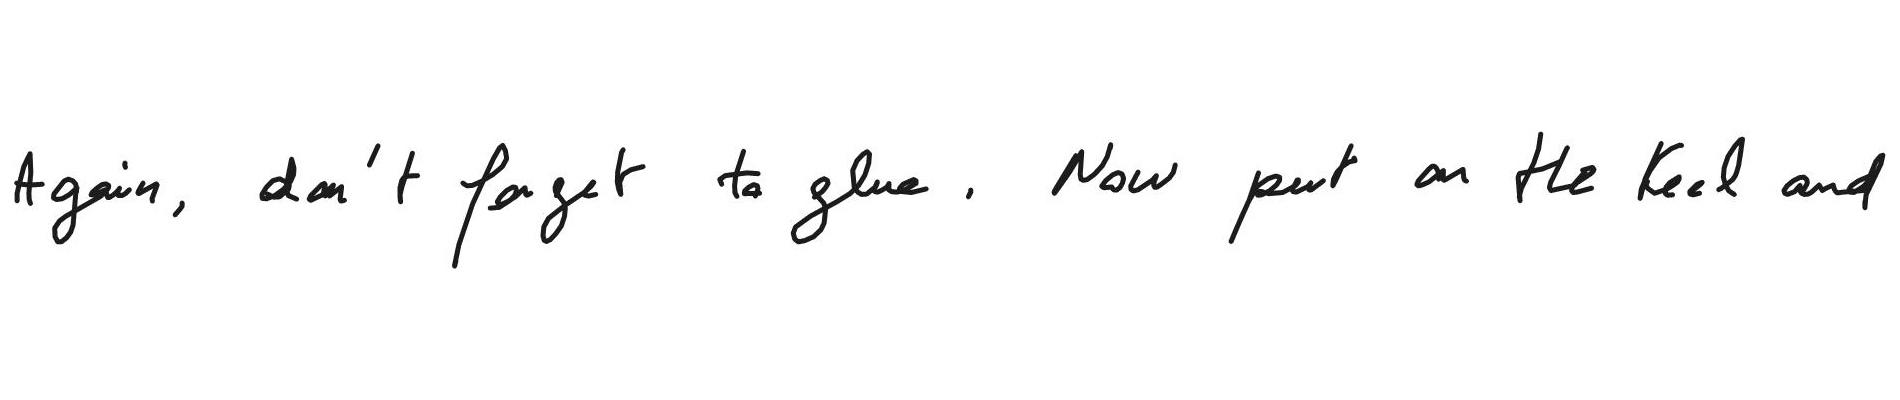 Again, don't forget to glue. Now put on the keel and